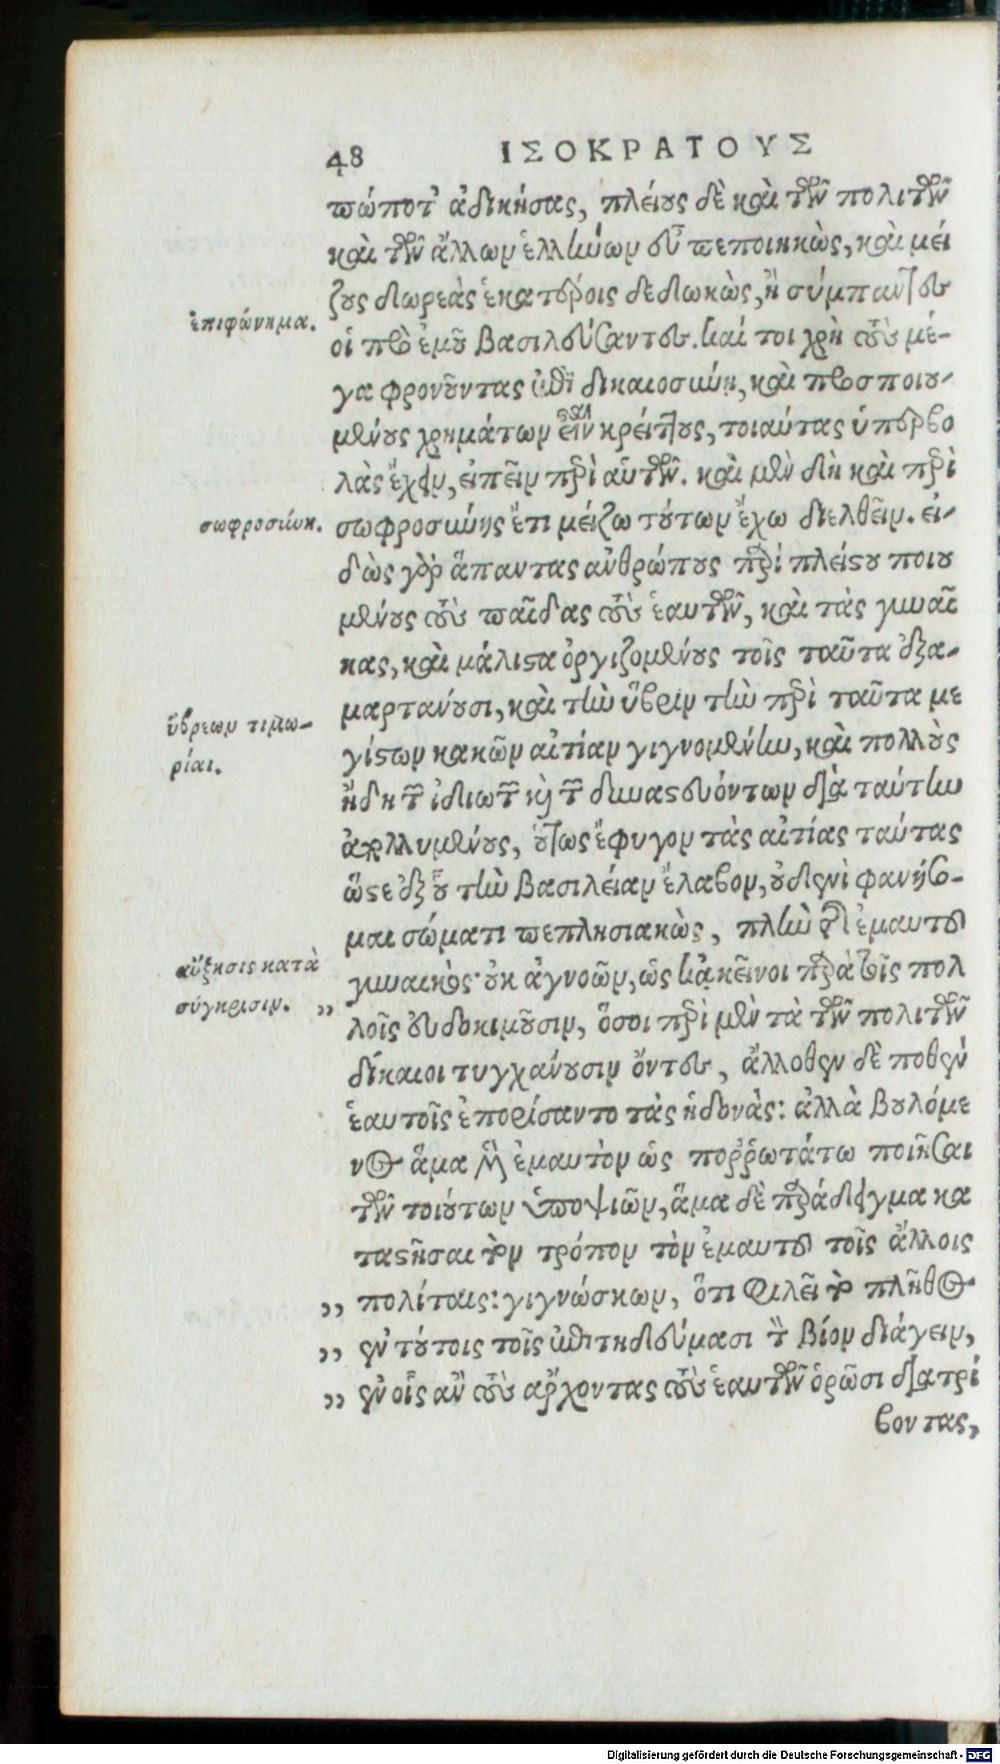 48 ΙΣΟΚΡΑΤΟΥΣ
πώποτ' ἀδικήσας, πλείους δὲ καὶ τῶν πολιτῶν
καὶ τῶν ἄλλων ἑλλήνων εὖ πεποιηκὼς, καὶ μεί
ζους δωρεὰς ἑκατέροις δεδωκὼς, ἢ σύμπαντες
ἐπιφώνημα.
οἱ πρὸ ἐμοῦ βασιλεύσαντες. καί τοι χρὴ τοὺς μέ-
γα φρονοῦντας ἐπὶ δικαιοσύνῃ, καὶ προσποιου-
μένους χρημάτων εἶναι κρείττους, τοιαύτας ὑπερβο
λὰς ἔχειν, εἰπεῖν περὶ αὑτῶν. καὶ μὲν δὴ καὶ περὶ
σωφροσύνη.
σωφροσύνης ἔτι μείζω τούτων ἔχω διελθεῖν. εἰ-
δὼς γὰρ ἅπαντας ἀνθρώπους περὶ πλείστου ποιου
μένους τοὺς παῖδας τοὺς ἑαυτῶν, καὶ τὰς γυναῖ
κας, καὶ μάλιστα ὀργιζομένους τοῖς ταῦτα ἐξα-
μαρτάνουσι, καὶ τὴν ὕβριν τὴν περὶ ταῦτα με
ὕβρεων τιμω-
ρίαι.
γίστων κακῶν αἰτίαν γιγνομένην, καὶ πολλοὺς
ἤδη τῶν ἰδιωτῶν καὶ τῶν δυναστευόντων διὰ ταύτην
ἀπολλυμένους, οὕτως ἔφυγον τὰς αἰτίας ταύτας
ὥστε ἐξ οὗ τὴν βασιλείαν ἔλαβον, οὐδενὶ φανήσο-
μαι σώματι πεπλησιακὼς, πλὴν τῆς ἐμαυτοῦ
αὔξησις κατὰ
σύγκρισιν.
γυναικός· οὐκ ἀγνοῶν, ὡς κἀκεῖνοι παρὰ τοῖς πολ
,, λοῖς εὐδοκιμοῦσιν, ὅσοι περὶ μὲν τὰ τῶν πολιτῶν
δίκαιοι τυγχάνουσιν ὄντες, ἄλλοθεν δὲ ποθὲν
ἑαυτοῖς ἐπορίσαντο τὰς ἡδονάς: ἀλλὰ βουλόμε
νος ἅμα μὲν ἐμαυτὸν ὡς ποῤῥωτάτω ποιῆσαι
τῶν τοιούτων ὑποψιῶν, ἅμα δὲ παράδειγμα κα
ταστῆσαι τὸν τρόπον τὸν ἐμαυτοῦ τοῖς ἄλλοις
,, πολίταις: γιγνώσκων, ὅτι φιλεῖ τὸ πλῆθος
,, ἐν τούτοις τοῖς ἐπιτηδεύμασι τὸν βίον διάγειν,
,, ἐν οἷς ἂν τοὺς ἄρχοντας τοὺς ἑαυτῶν ὁρῶσι διατρί
βοντας,
Digitalisierung gefördert durch die Deutsche Forschungsgemeinschaft - DFG